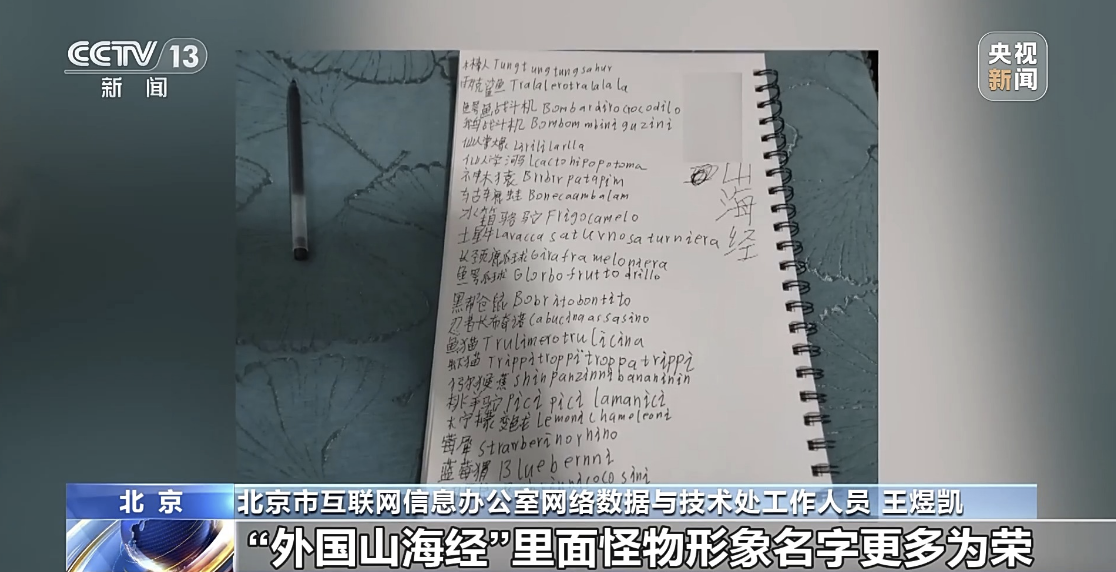 CCTV 13
新闻
央视
新闻
木棒人 Tungtungtungsahur
耐克鲨鱼 Tralalerotralalala
鱼鳄鱼战斗机 Bombardirocrocodilo
战斗机 Bombommbiniguzini
仙人掌大象 Lirililarlla
仙人掌河 Lcactohipopotoma
Brrbrrpatapim
蛙 Bonecaambalam
冰箱骆驼 Frigocamelo
土星牛 Lavaccasaturnosaturniera
长颈鹿西瓜球 Giraframeloniera
鱼鳄 Glorbofruttodrillo
黑帮仓鼠 Bobritobontito
忍者卡布奇诺 Cabucinaassasino
鱼猫 Trulimerotrulicina
虾猫 Trippitroppitroppatrippi
猴蕉 Shinpanzinnibananinin
Pici pici lamanici
变色龙 Lemonichameleoni
莓犀 Strawberinorhino
蓝莓猬 Bluebernni
山
海
经
北京
北京市互联网信息办公室网络数据与技术处工作人员 王煜凯
“外国山海经”里面怪物形象名字更多为荣